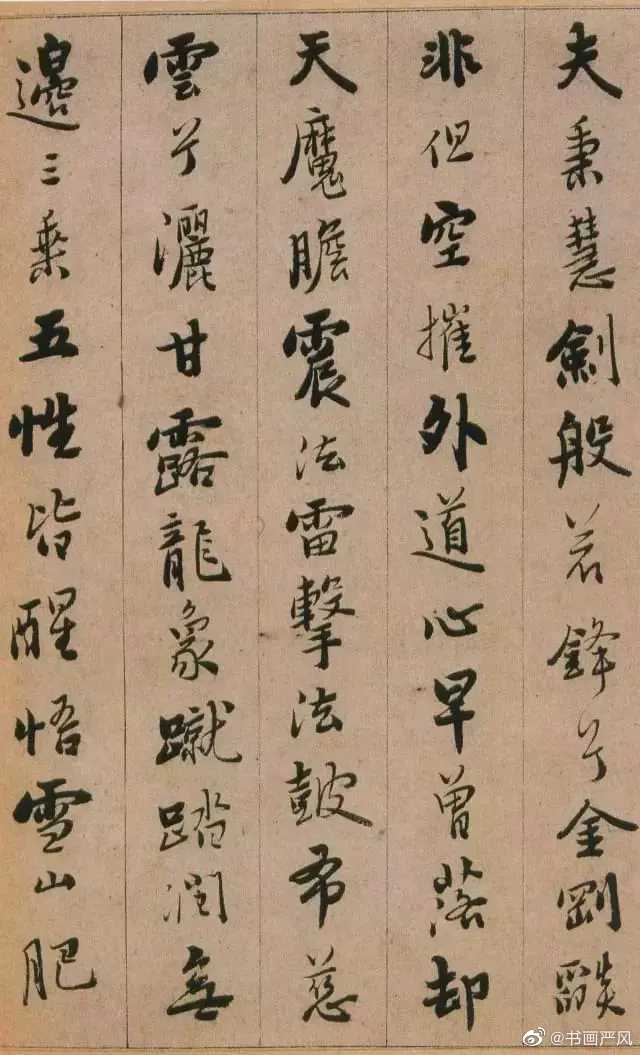 夫秉慧劍般若鋒兮金剛燄
非但空摧外道心早曾落却
天魔膽震法雷擊法鼓布慈
雲兮灑甘露龍象蹴踏潤無
邊三乘五性皆醒悟雪山肥
@书画严风